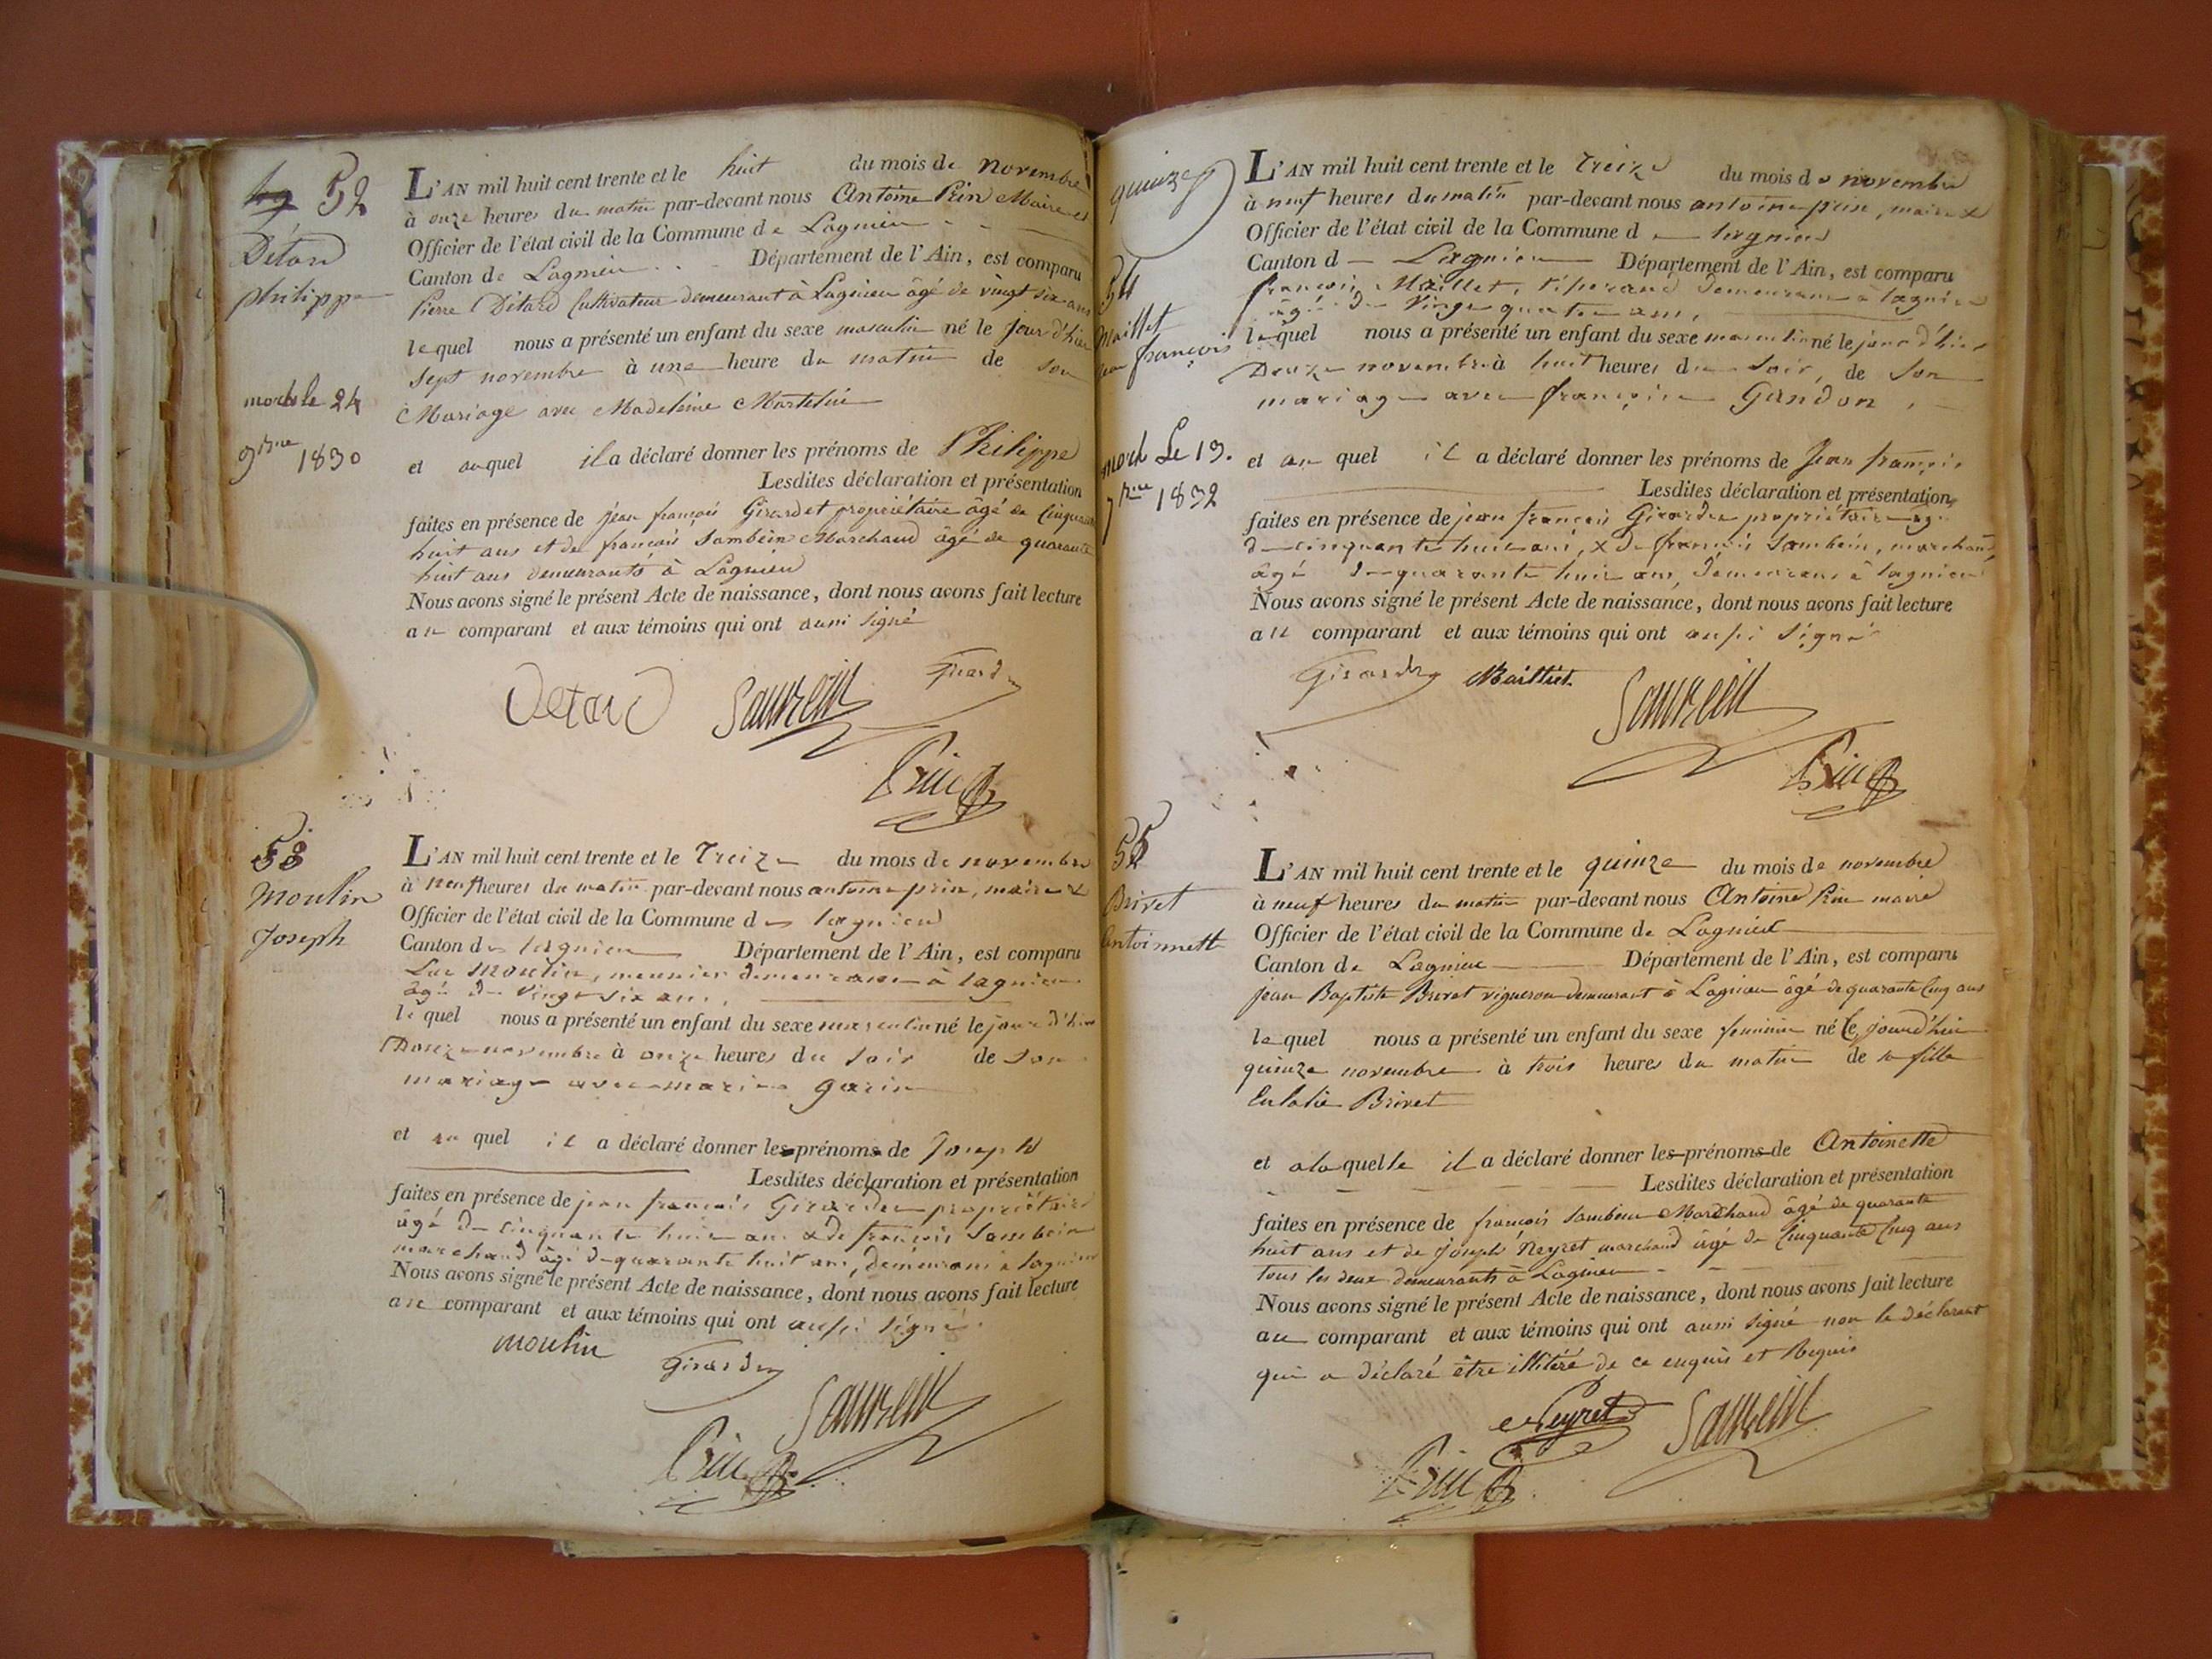 52
Détard
philippe
mort le 24
9bre 1830
L'AN mil huit cent trente et le huit du mois de novembre
à onze heures du matin par-devant nous Antoine Prin Maire et
Officier de l'état civil de la Commune de Lagnieu
Canton de Lagnieu Département de l'Ain, est comparu
Pierre Détard Cultivateur demeurant à Lagnieu âgé de vingt six ans
lequel nous a présenté un enfant du sexe masculin né le jour d'hier
sept novembre à une heure du matin de son
Mariage avec Madeleine Martelin
et auquel il a déclaré donner les prénoms de Philippe
Lesdites déclaration et présentation
faites en présence de jean françois Girardet propriétaire âgé de Cinquante
huit ans et de françois Sambein Marchand âgé de quarante
huit ans demeurants à Lagnieu
Nous avons signé le présent Acte de naissance, dont nous avons fait lecture
au comparant et aux témoins qui ont aussi signé
Detard
Girard
Prin
53
Moulin
Joseph
L'AN mil huit cent trente et le Treize du mois de novembre
à neuf heures du matin par-devant nous antoine prin, maire &
Officier de l'état civil de la Commune de lagnieu
Canton de lagnieu Département de l'Ain, est comparu
Luc Moulin, meunier demeurant à lagnieu
âgé de vingt six ans,
lequel nous a présenté un enfant du sexe masculin né le jour d'hier
Douze novembre à onze heures du soir de son
mariage avec marie garin
et au quel il a déclaré donner les prénoms de Joseph
Lesdites déclaration et présentation
faites en présence de jean françois Girardet propriétaire
âgé de cinquante huit ans & de françois Sambein
marchand âgé de quarante huit ans, demeurans à lagnieu
Nous avons signé le présent Acte de naissance, dont nous avons fait lecture
au comparant et aux témoins qui ont aussi signé.
moulin
Girardet
Prin
quinze
54
Maillet
jean françois
mort Le 19.
1832
L'AN mil huit cent trente et le Treize du mois de novembre
à neuf heures du matin par-devant nous antoine prin, maire &
Officier de l'état civil de la Commune de lagnieu
Canton d Lagnieu Département de l'Ain, est comparu
françois Maillet, demeurant à lagnieu
âgé de Vingt quatre ans,
lequel nous a présenté un enfant du sexe masculin né le jour d'hier
Douze novembre à huit heures du soir, de son
mariage avec françoise Gandon,
et au quel il a déclaré donner les prénoms de Jean françois
Lesdites déclaration et présentation,
faites en présence de jean françois Girardet propriétaire âgé
de cinquante huit ans, & de françois Sambein, marchand,
âgé de quarante huit ans, demeurans à lagnieu
Nous avons signé le présent Acte de naissance, dont nous avons fait lecture
au comparant et aux témoins qui ont aussi signé
Girardet Maillet
Prin
55
Brivet
Antoinette
L'AN mil huit cent trente et le quinze du mois de novembre
à neuf heures du matin par-devant nous Antoine Prin maire
Officier de l'état civil de la Commune de Lagnieu
Canton de Lagnieu Département de l'Ain, est comparu
jean Baptiste Brivet vigneron demeurant à Lagnieu âgé de quarante Cinq ans
lequel nous a présenté un enfant du sexe feminin né le jourd'hui
quinze novembre à trois heures du matin de sa fille
Eulalie Brivet
et a laquelle il a déclaré donner les prénoms de Antoinette
Lesdites déclaration et présentation
faites en présence de françois Sambein Marchand âgé de quarante
huit ans et de joseph Neyret marchand âgé de Cinquante Cinq ans
tous les deux demeurants à Lagnieu
Nous avons signé le présent Acte de naissance, dont nous avons fait lecture
au comparant et aux témoins qui ont aussi signé non le déclarant
qui a déclaré être illitéré de ce enquis et Requis
Neyret
Prin